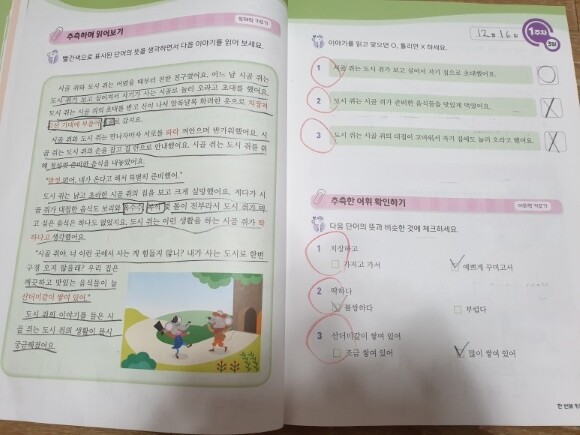 추측하며 읽어보기
빨간색으로 표시된 단어의 뜻을 생각하면서 다음 이야기를 읽어 보세요.
시골 쥐와 도시 쥐는 어렸을 때부터 친한 친구였어요. 어느 날 시골 쥐는
도시 쥐가 보고 싶어져서 자기가 사는 시골로 놀러 오라고 초대를 했어요.
도시 쥐는 시골 쥐의 초대를 받고 신이 나서 알록달록 화려한 옷으로 치장하
고
갔지요.
시골 쥐와 도시 쥐는 만나자마자 서로를 와락 껴안으며 반가워했어요. 시
골 쥐는 도시 쥐의 손을 잡고 집 안으로 안내했어요. 시골 쥐는 도시 쥐를 위
해 정성껏 준비한 음식을 내놓았어요.
도시 쥐는 낡고 초라한 시골 쥐의 집을 보고 크게 실망했어요. 게다가 시
골 쥐가 대접한 음식도 보리와 옥수수,
콩이 전부라서 도시 쥐가 먹
고 싶은 음식은 하나도 없었지요. 도시 쥐는 이런 생활을 하는 시골 쥐가 딱
하다고 생각했어요.
"시골 쥐야, 너 이런 곳에서 사는 게 힘들지 않니? 내가 사는 도시로 한번
구경 오지 않을래? 우리 집은
깨끗하고 맛있는 음식들이 늘
산더미같이 쌓여 있어."
도시 쥐의 이야기를 들은 시
골 쥐는 도시 쥐의 생활이 몹시
궁금해졌어요.
12월 16일
1주차
3일
이야기를 읽고 맞으면 O, 틀리면 X 하세요.
1 시골 쥐는 도시 쥐가 보고 싶어서 자기 집으로 초대했어요. O
2 도시 쥐는 시골 쥐가 준비한 음식들을 맛있게 먹었어요. X
3 도시 쥐는 시골 쥐의 대접이 고마워서 자기 집에도 놀러 오라고 했어요. X
추측한 어휘 확인하기
다음 단어의 뜻과 비슷한 것에 체크하세요.
1 치장하고
가지고 가서
예쁘게 꾸미고서
2 딱하다
불쌍하다
부럽다
3 산더미같이 쌓여 있어
조금 쌓여 있어
많이 쌓여 있어